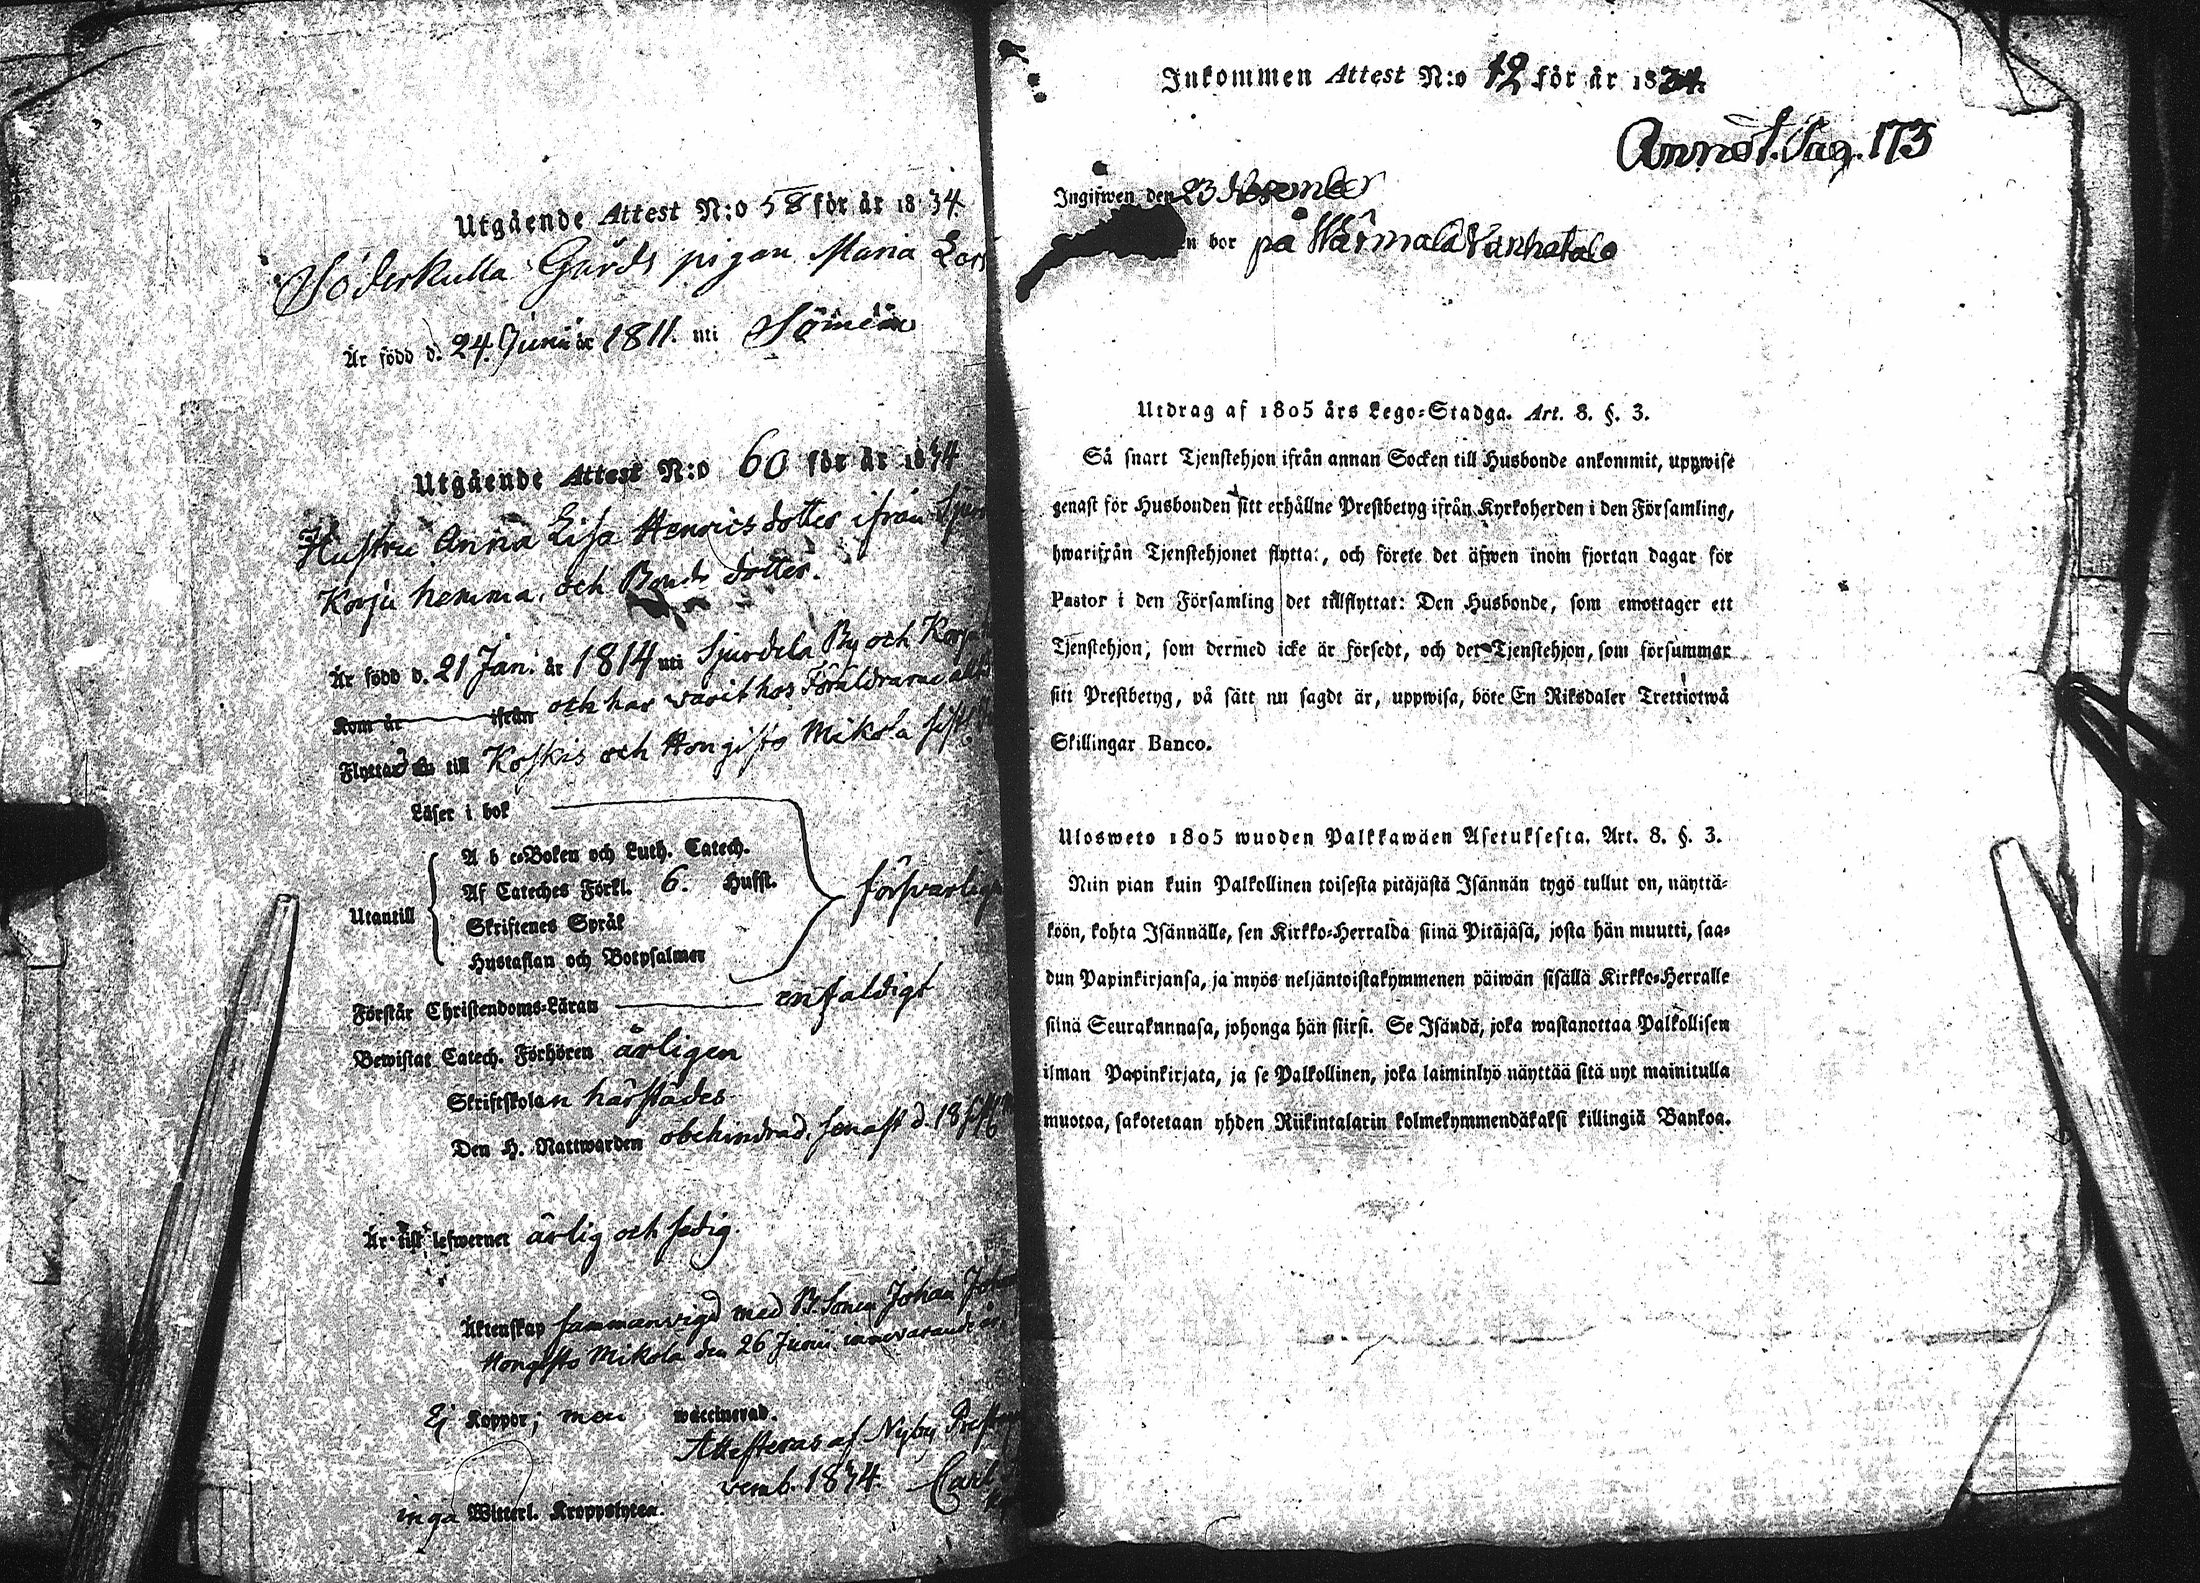 Utgående Attest N:o 58 för år 1834.
Söderkulla Gårds pigan Maria
Är född d. 24. Junii år 1811. uti
Utgående Attest N:o 60 för år 1834
Hustru Anna Lisa Henricsdotter ifrån
Korju hemma, och Bonde dotter.
Är född d. 21 Jan. år 1814 uti Sjurdela By och
Kom år ifrån och har varit hos Föräldrarne
Flyttar till Koskis och Hongisto Mikola
Läser i bok
A b c-Boken och Luth. Catech.
Af Cateches Förkl. 6. Hufst.
Utantill
Skriftenes Språk
Hustaflan och Botpsalmer
försvarligt
Förstår Christendoms-Läran enfaldigt
Bewistat Catech. Förhören årligen
Skriftskolan härstädes
Den H. Nattwarden obehindrad, senast d. 18
Är till lefwernet ärlig och sedig.
Äktenskap sammanvigd med B. Sonen Johan
Hongisto Mikola den 26 Junii innevarande år
Ej Koppor; men waccinerad.
Attesteras af Nyby
vemb. 1834. Carl
inga Witterl. Kroppslyten.
Inkommen Attest N:o 12 för år 1834.
Annot. Pag. 173
Ingifwen den 23 November
en bor på Wärmala Vanhatalo
Utdrag af 1805 års Lego-Stadga. Art. 8. §. 3.
Så snart Tjenstehjon ifrån annan Socken till Husbonde ankommit, uppwise
genast för Husbonden sitt erhållne Prestbetyg ifrån Kyrkoherden i den Församling,
hwarifrån Tjenstehjonet flytta:, och förete det äfwen inom fjortan dagar för
Pastor i den Församling det tillflyttat: Den Husbonde, som emottager ett
Tjenstehjon, som dermed icke är försedt, och det Tjenstehjon, som försummar
sitt Prestbetyg, på sätt nu sagdt är, uppwisa, böte En Riksdaler Trettiotwå
Skillingar Banco.
Ulosweto 1805 wuoden Palkkawäen Asetuksesta. Art. 8. §. 3.
Niin pian kuin Palkollinen toisesta pitäjästä Isännän tygö tullut on, näyttä-
köön, kohta Isännälle, sen Kirkko-Herralda siinä Pitäjäsä, josta hän muutti, saa-
dun Papinkirjansa, ja myös neljäntoistakymmenen päiwän sisällä Kirkko-Herralle
siinä Seurakunnasa, johonga hän siirsi. Se Isändä, joka wastanottaa Palkollisen
ilman Papinkirjata, ja se Palkollinen, joka laiminlyö näyttää sitä nyt mainitulla
muotoa, sakotetaan yhden Riikintalarin kolmekymmendäkaksi killingiä Bankoa.